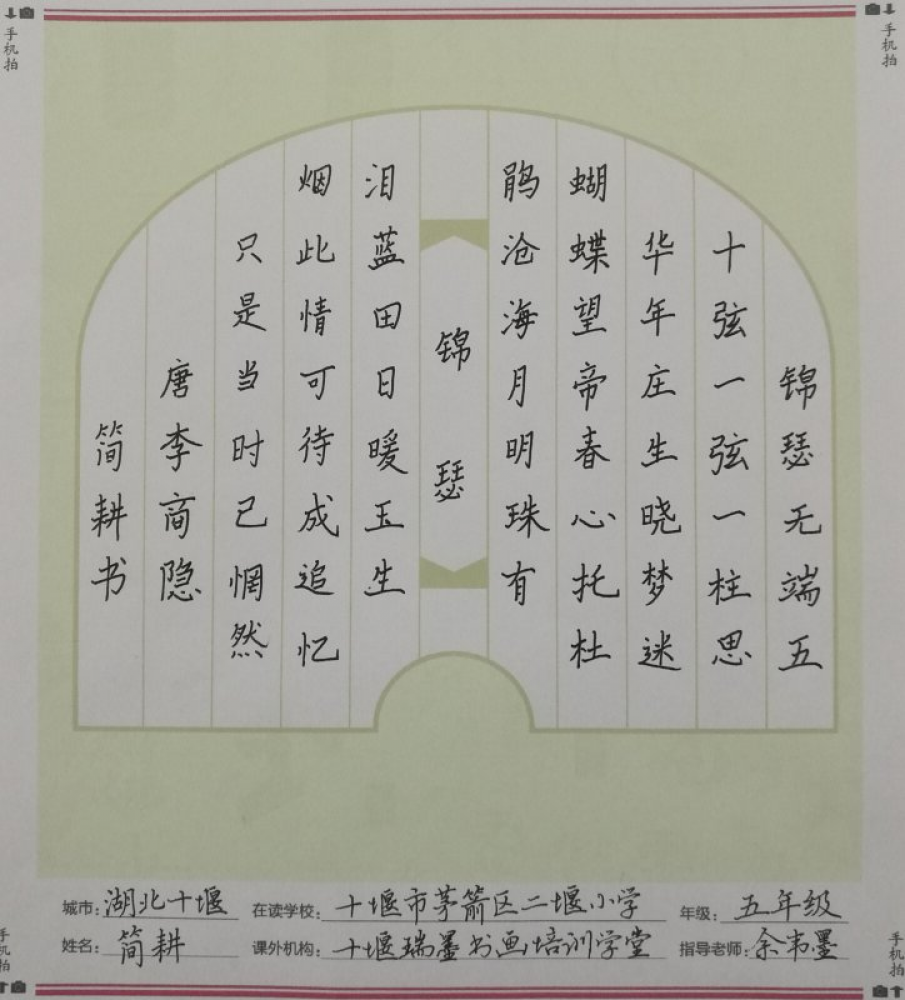 手机拍
手机拍
锦瑟无端五
十弦一弦一柱思
华年庄生晓梦迷
蝴蝶望帝春心托杜
鹃沧海月明珠有
锦瑟
泪蓝田日暖玉生
烟此情可待成追忆
只是当时已惘然
唐李商隐
简耕书
城市:湖北十堰 在读学校:十堰市茅箭区二堰小学 年级:五年级
姓名:简耕 课外机构:十堰瑞墨书画培训学堂 指导老师:余韦墨
手机拍
手机拍